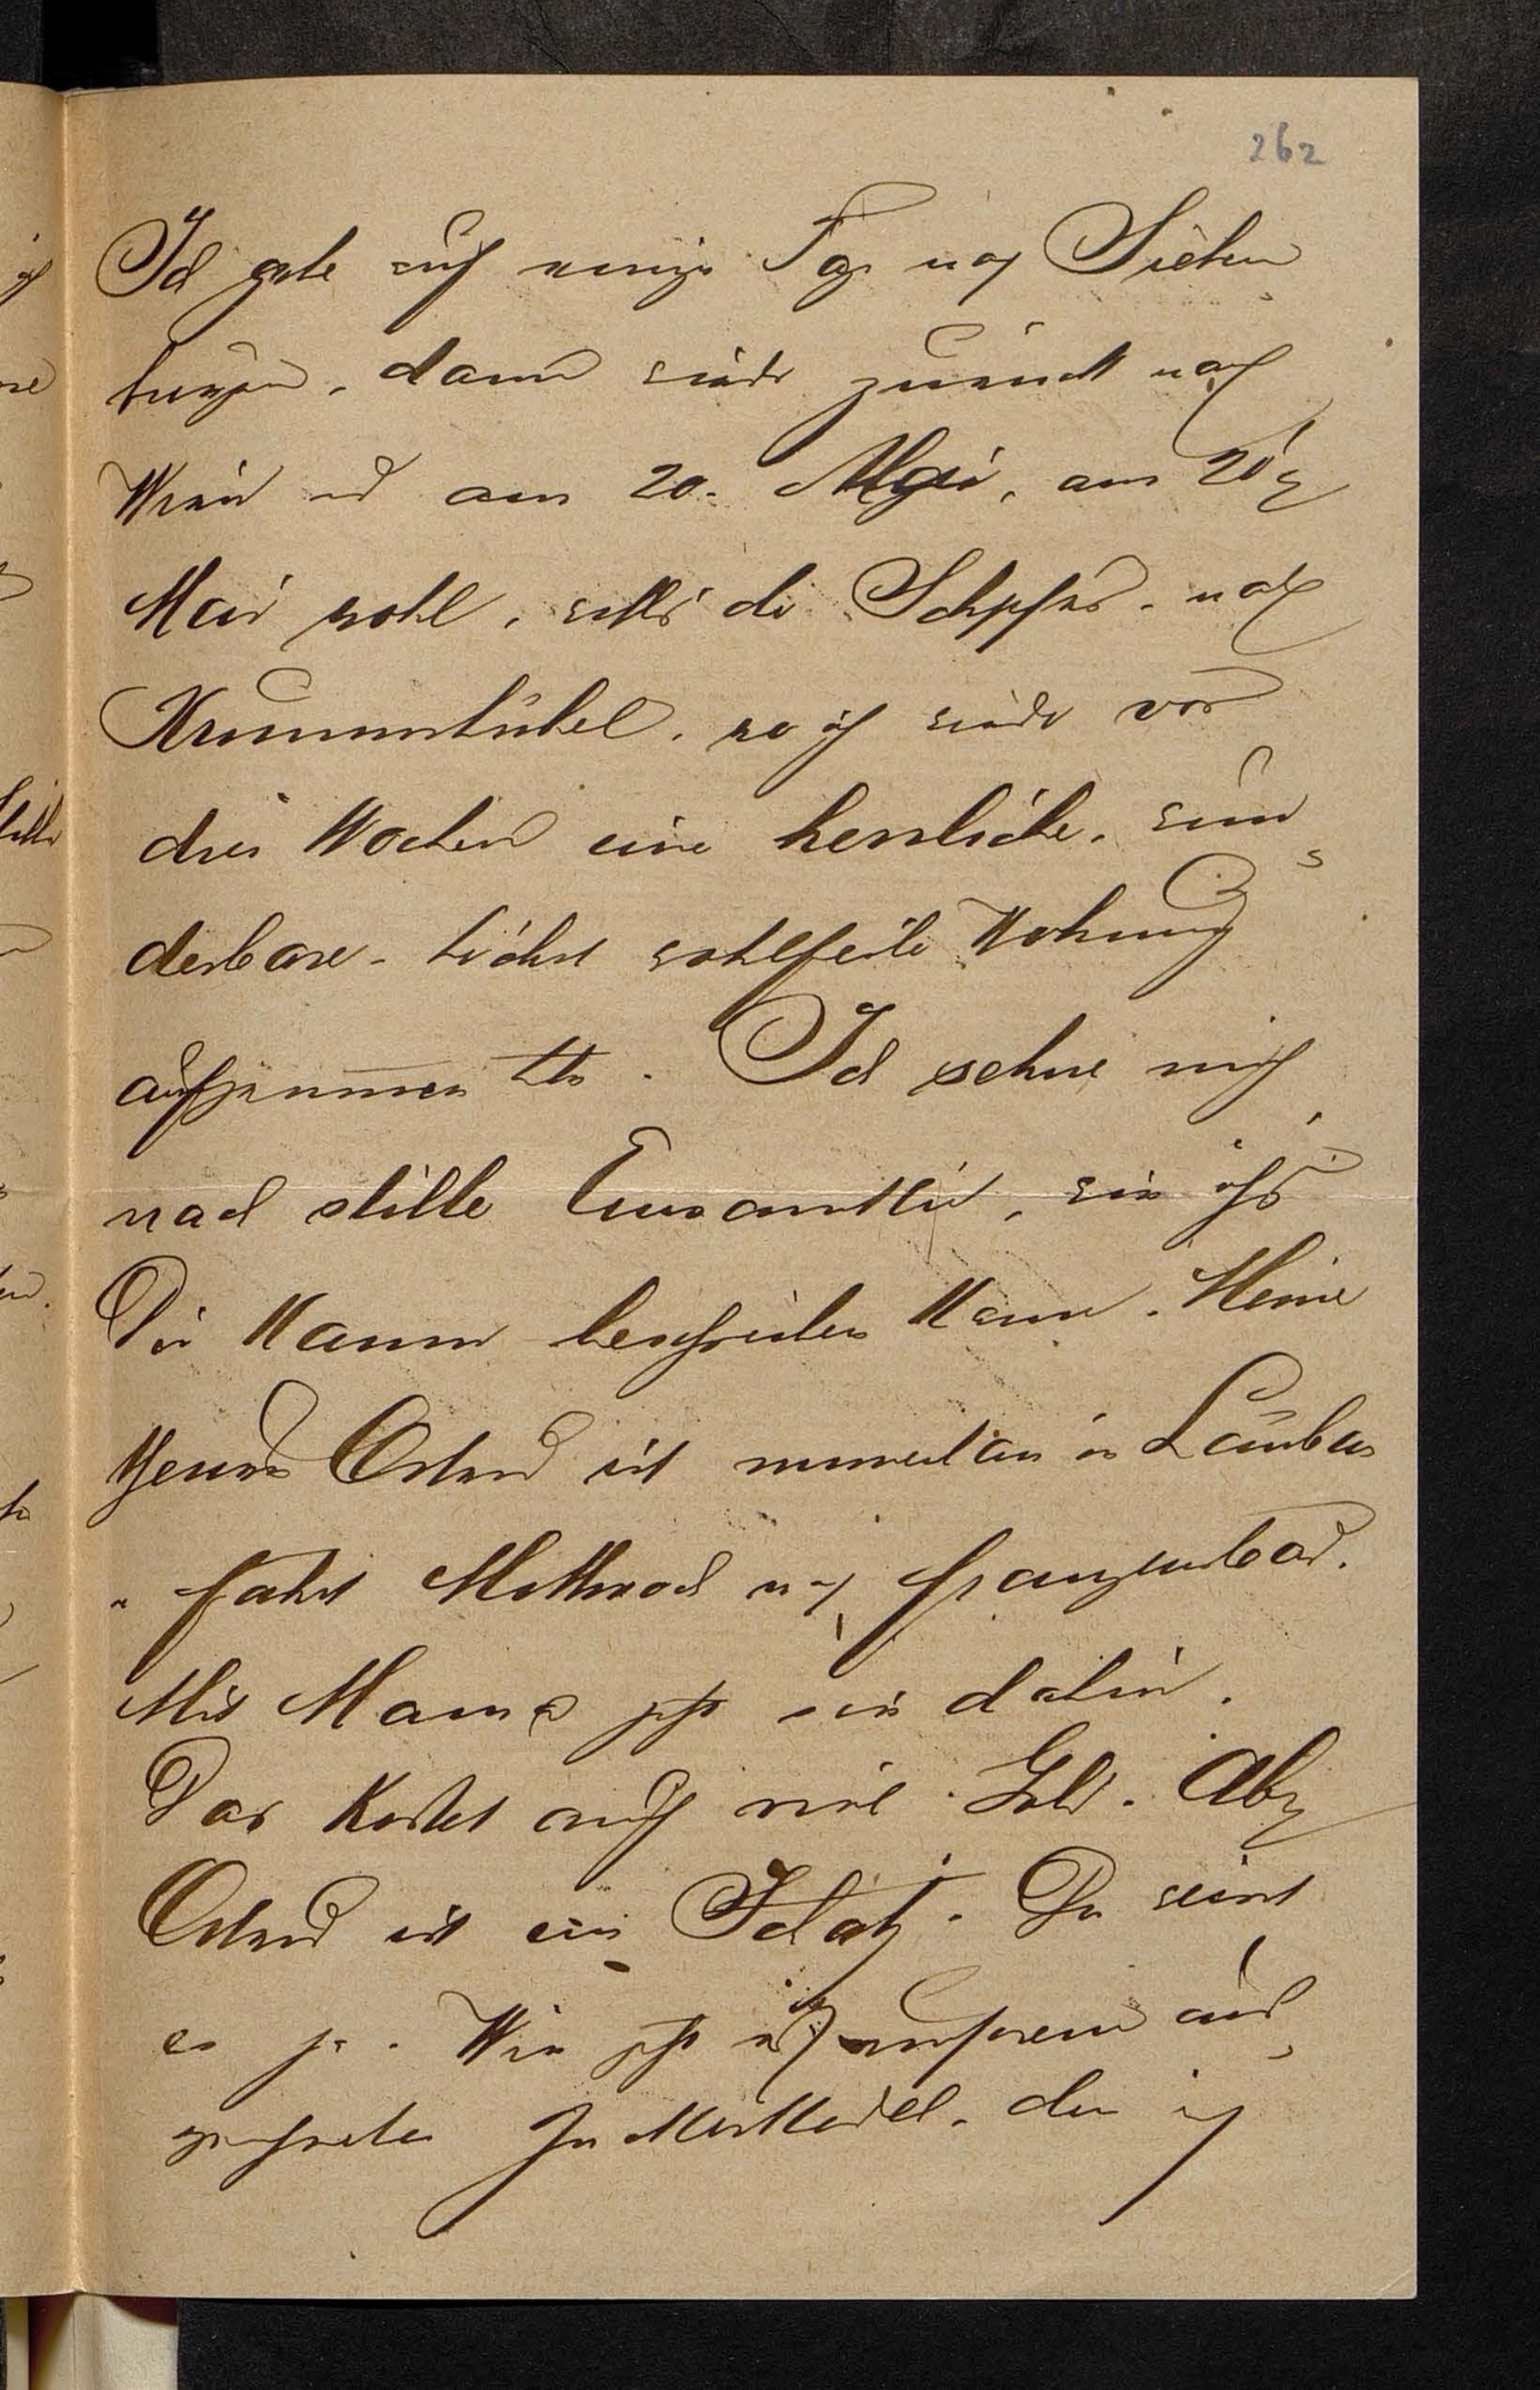 262
Ich gehe auf einige Tage nach Sieben
bürgen, dann wieder zurück nach
Wien und am 20. Mai, am 20
Mai wohl, nach
Krummhübel, wo ich wieder vor
drei Wochen eine herrliche, wun
derbare, höchst wohlfeile Wohnung
aufgenommen habe. Ich sehne mich
nach stiller Einsamkeit, wie ichs
Dir kaum beschreiben kann. Meine
Ostend ist momentan in Lauban
u fährt Mittwoch nach Franzensbad.
Mit Mama geht sie dahin.
Das kostet auch viel Geld. Aber
Ostend ist ein Schatz. Du weist
es ja. Wie geht es unserem aus
den ich